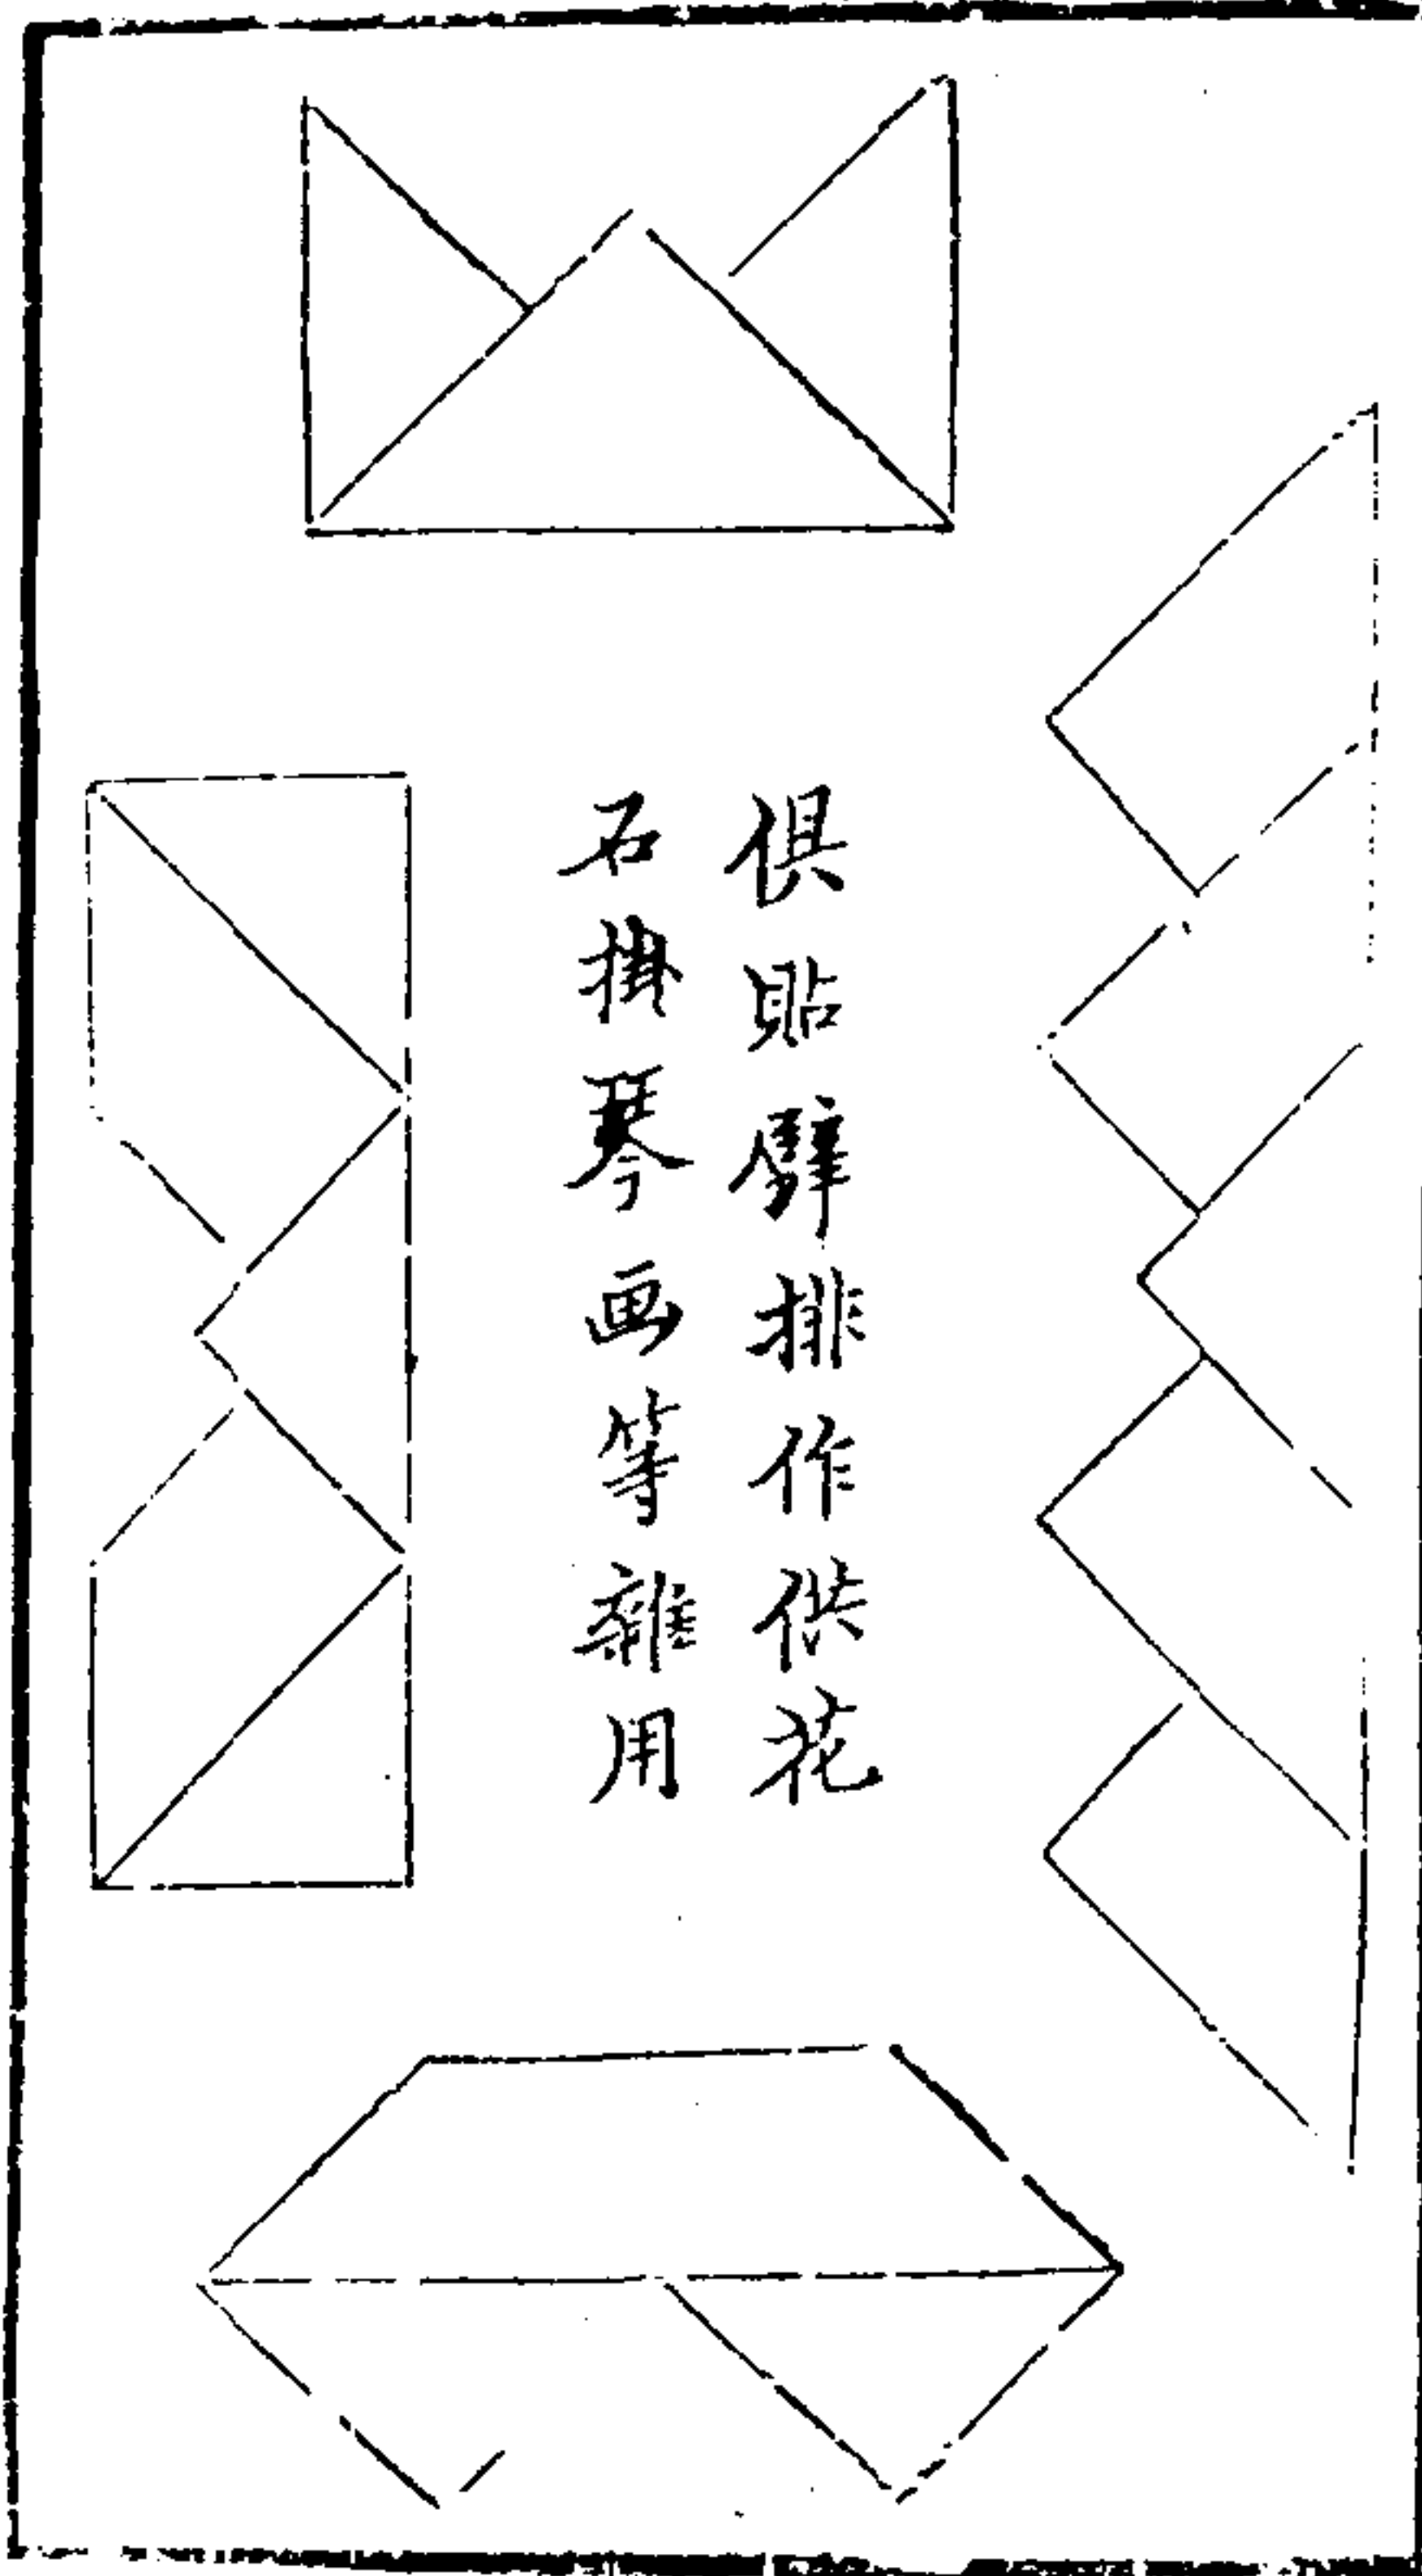 俱貼壁排作供花
石掛琴画等雜用